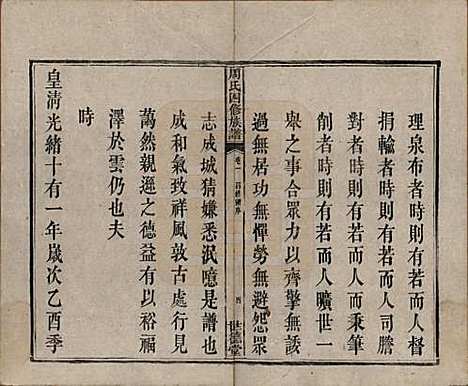 理泉布者時則有若而人督
捐輸者時則有若而人司謄
對者時則有若而人而秉筆
削者時則有若而人曠世一
舉之事合眾力以齊擎無諉
過無居功無憚勞無避怨眾
周氏四修族譜
卷一
四
世德堂
志成城猜嫌悉泯噫是譜也
咸和氣致祥風敦古處行見
藹然親遜之德益有以裕福
澤於雲仍也夫
時
皇清光緒十有一年歲次乙酉季